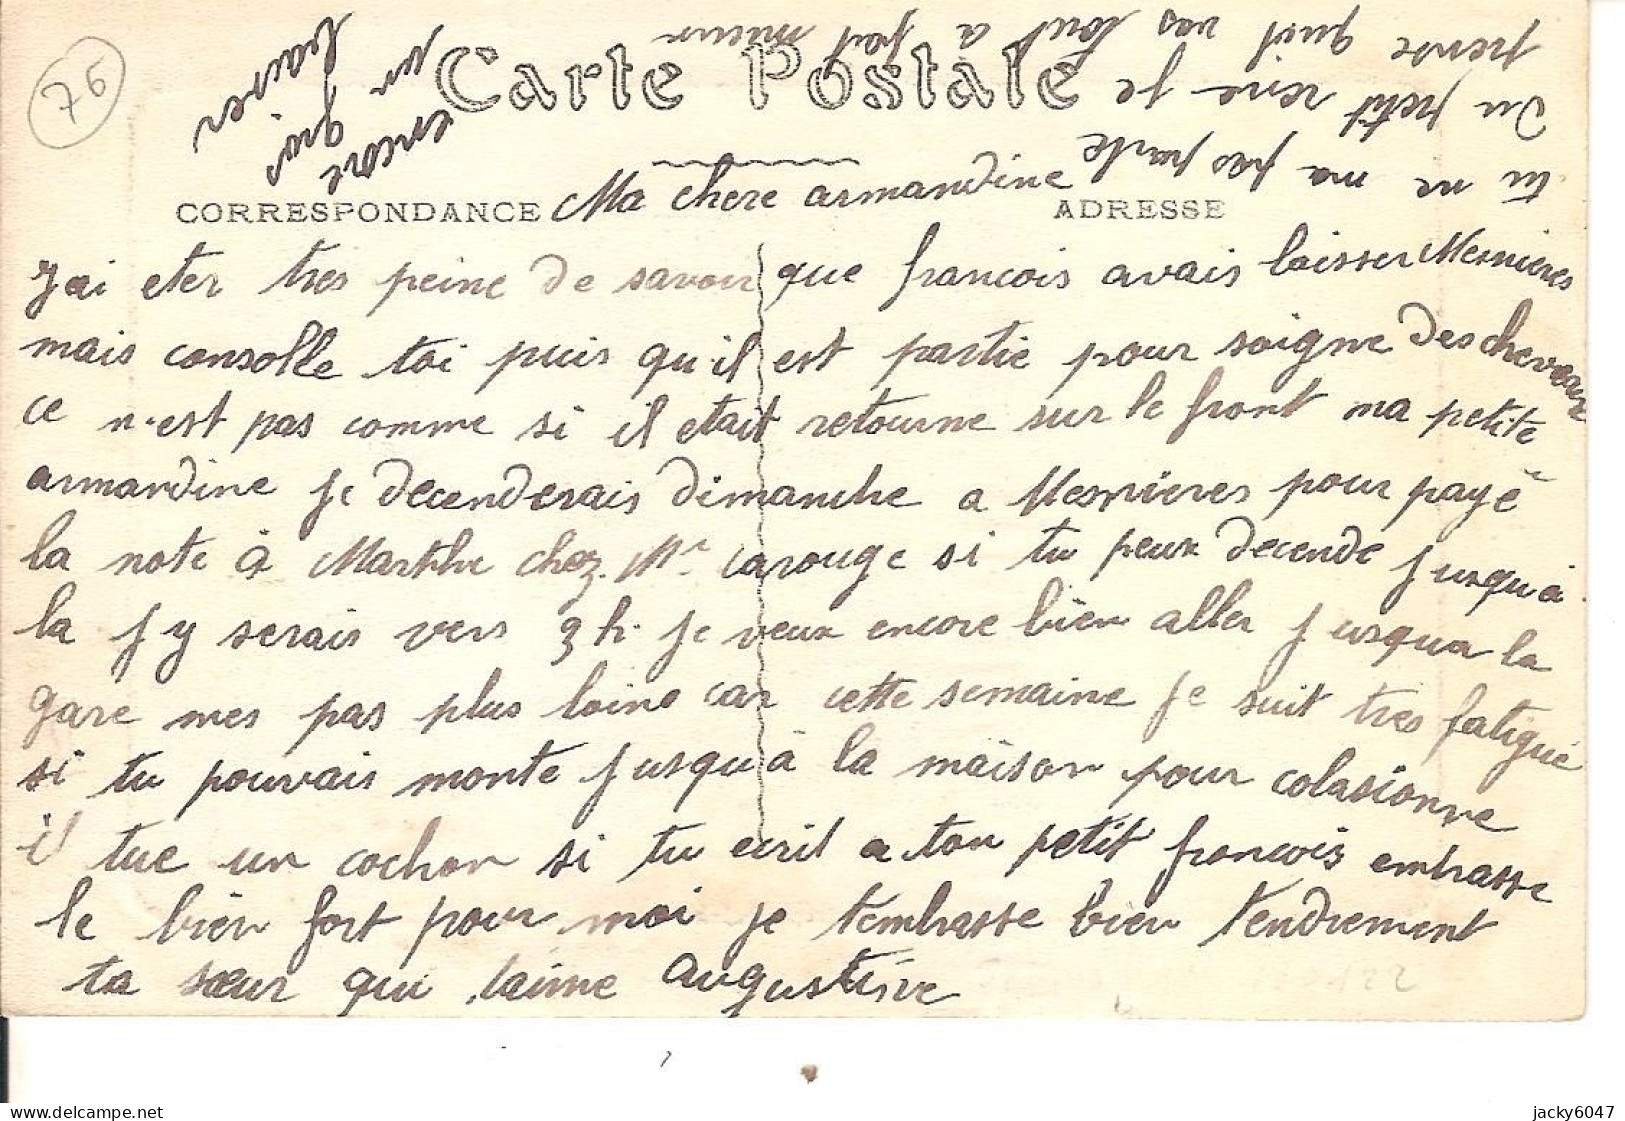 76
Carte Postale
CORRESPONDANCE
ADRESSE
Ma chere armandine
J'ai eter tres peine de savoir que francois avais laisser Mesnieres
mais consolle toi puis qu'il est partie pour soigne des chevaux
ce n'est pas comme si il etait retourne sur le front ma petite
armandine je decenderais dimanche a Mesnieres pour payé
la note à Marthe chez Mr Larouge si tu peux decende jusqu'à
la j'y serais vers 3 h. je veux encore bien aller jusqua la
gare mes pas plus loins car cette semaine je suit tres fatigué
si tu pouvais monte jusqu'à la maison pour colasionne
il tue un cochon si tu ecrit a ton petit francois embrasse
le bien fort pour moi je t'embrasse bien tendrement
ta sœur qui t'aime Augustine
tu ne ma pas parle
du petit rene je
pense quil vas tout a fait mieux
encore
un gros
baiser
delcampe.net
jacky6047